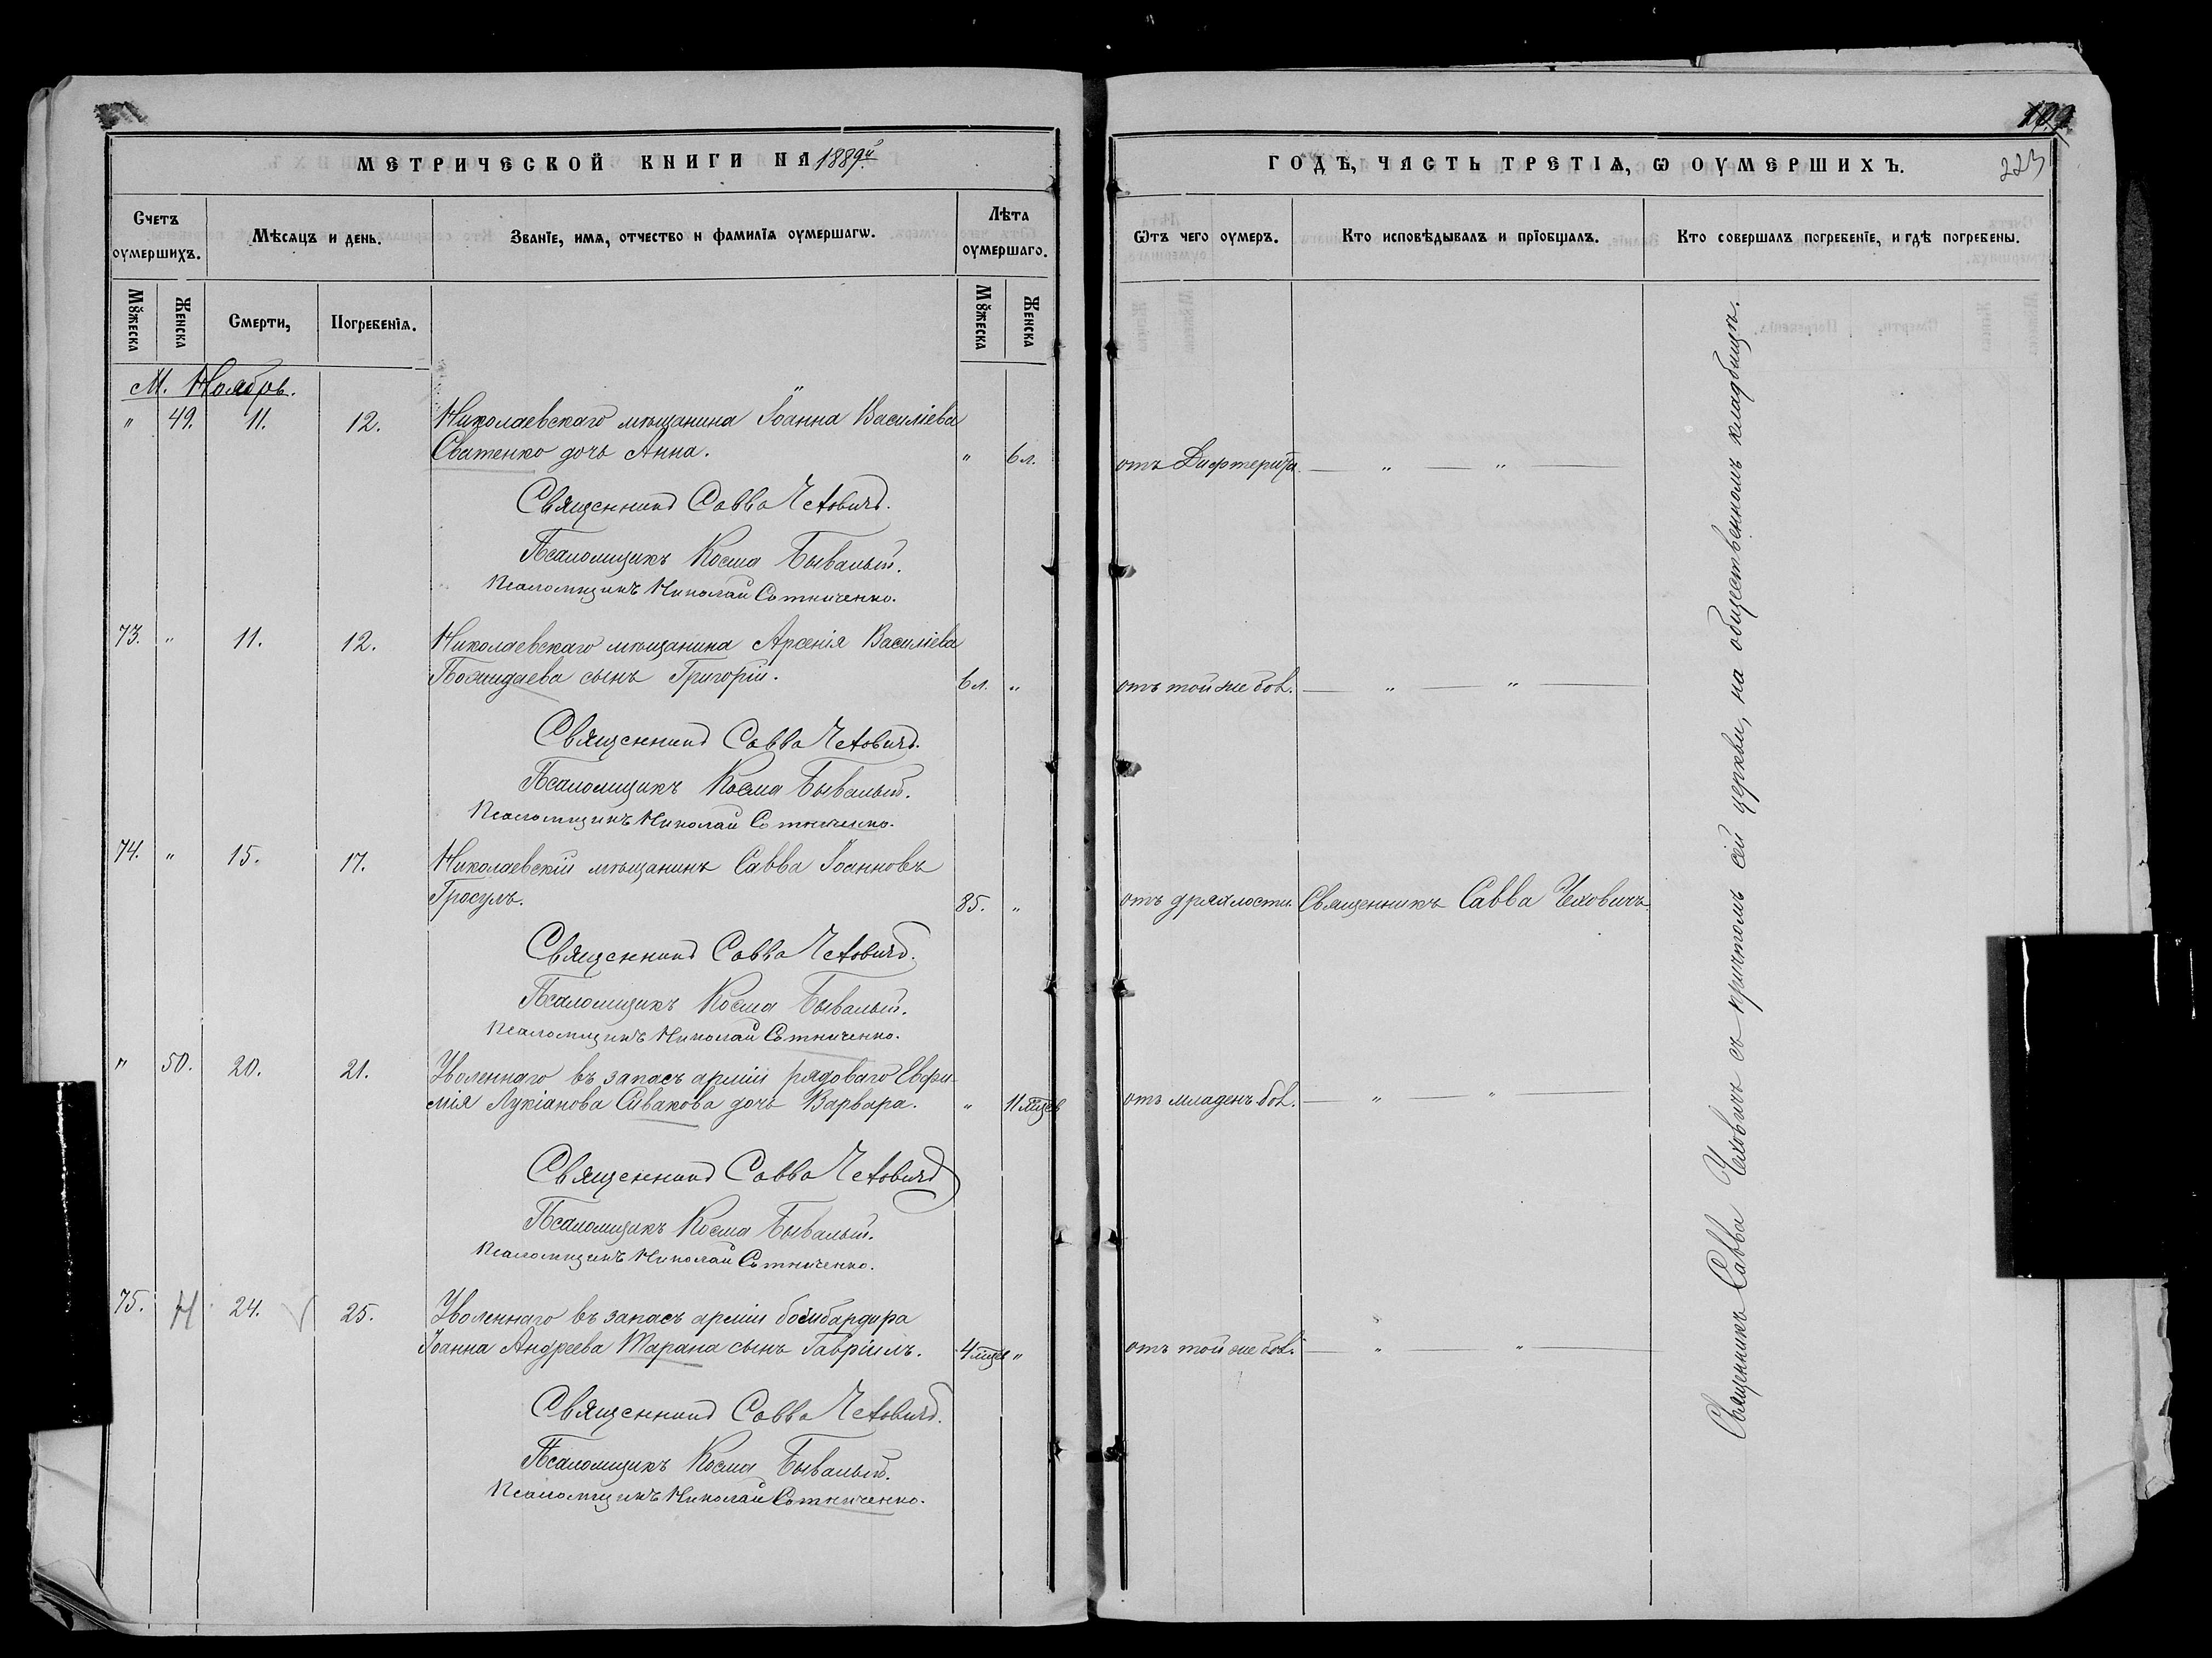 МЕТРИЧЕСКОЙ КНИГИ НА 1889й
Счетъ оумершихъ.
Мѣсяцъ и день.
Званїе, имѧ, отчество и фамилїѧ оумершагѡ.
Лѣта оумершаго.
Мꙋжеска
Женска
Смерти,
Погребенїѧ.
Мꙋжеска
Женска
М. Ноябрь.
" 49. 11. 12. Николаевскаго мѣщанина Іоанна Василіева
Сватенко дочь Анна. " 6 л.
Священникъ Савва Чеховичъ.
Псаломщикъ Косма Бывалый.
Псаломщикъ Николай Сотниченко.
73. " 11. 12. Николаевскаго мѣщанина Арсенія Василіева
сынъ Григорій. 6 л. "
Священникъ Савва Чеховичъ.
Псаломщикъ Косма Бывалый.
Псаломщикъ Николай Сотниченко.
74. " 15. 17. Николаевскій мѣщанинъ Савва Іоанновъ
Гросулъ. 85. "
Священникъ Савва Чеховичъ.
Псаломщикъ Косма Бывалый.
Псаломщикъ Николай Сотниченко.
" 50. 20. 21. Уволеннаго въ запасъ арміи рядоваго Евфи-
мія Лукіанова Сивакова дочь Варвара. " 11 мцев
Священникъ Савва Чеховичъ
Псаломщикъ Косма Бывалый.
Псаломщикъ Николай Сотниченко.
75. 24. 25. Уволеннаго въ запасъ арміи бомбардира
Іоанна Андреева Тарана сынъ Гавріилъ. 4 мцев "
Священникъ Савва Чеховичъ.
Псаломщикъ Косма Бывалый.
Псаломщикъ Николай Сотниченко.
ГОДЪ, ЧАСТЬ ТРЕТІѦ, Ѡ ОУМЕРШИХЪ.
223
Ѿтъ чего оумеръ.
Кто исповѣдывалъ и прїобщалъ.
Кто совершалъ погребенїе, и гдѣ погребены.
отъ Дифтерита — " — " —
отъ той же бол. — " — " —
отъ дряхлости. Священникъ Савва Чеховичъ
отъ младенч. бол. — " — " —
отъ той же бол. — " — " —
Священникъ Савва Чеховичъ съ причтомъ сей церкви, на общественномъ кладбищѣ.